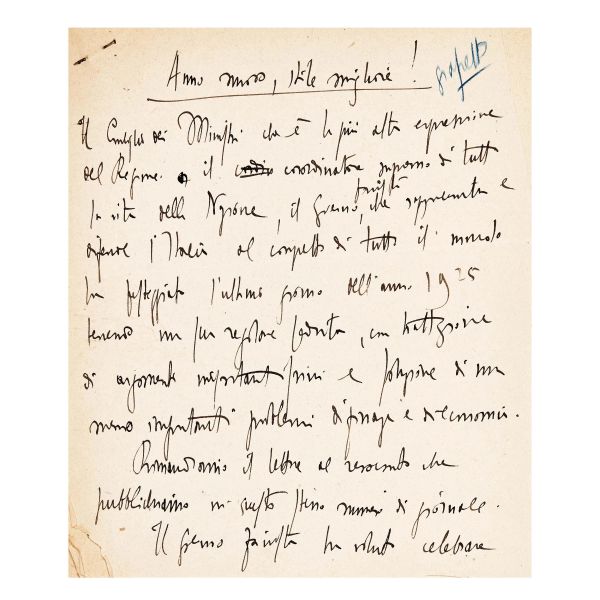 Anno nuovo, stile migliore!
grassetto
Il Consiglio dei Ministri che è la più alta espressione
del Regime. e il coordinatore supremo di tutta
la vita della Nazione, il Governo fascista, che rappresenta e
difende l'Italia al cospetto di tutto il mondo
ha festeggiato l'ultimo giorno dell'anno 1925
tenendo una pur regolare seduta, con trattazione
di argomenti importantissimi e soluzione di non
meno importanti problemi di finanza e di economia.
Rimandiamo il lettore al resoconto che
pubblichiamo in questo stesso numero di giornale.
Il governo fascista ha voluto celebrare